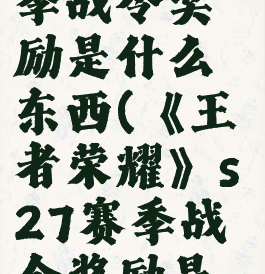 季战令奖
励是什么
东西(《王
者荣耀》s
27赛季战
令奖励是